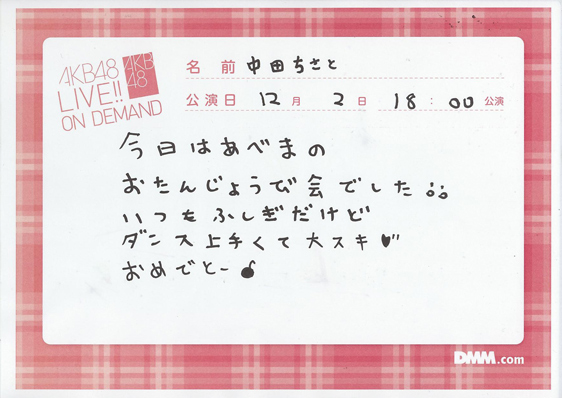 AKB48
LIVE!!
ON DEMAND
AKB
48
名 前 中田ちさと
公演日 12月 2日 18:00公演
今日はあべまの
おたんじょうび会でした
いつもふしぎだけど
ダンス上手くて大スキ♥"
おめでとー
DMM.com